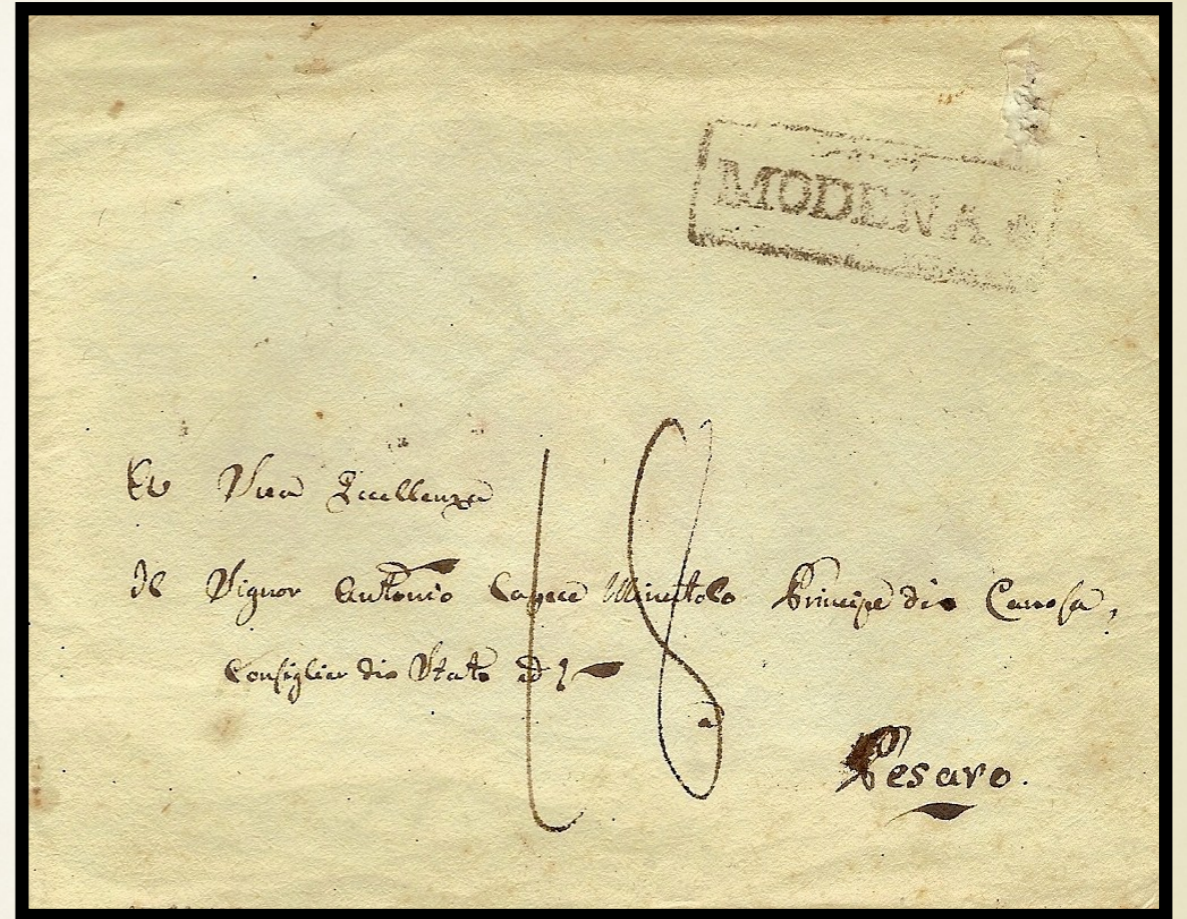 MODENA
Sua Eccellenza
Il Signor Antonio Capece Minutolo Principe di Canosa,
Consiglier di Stato ed
18
a
Pesaro.